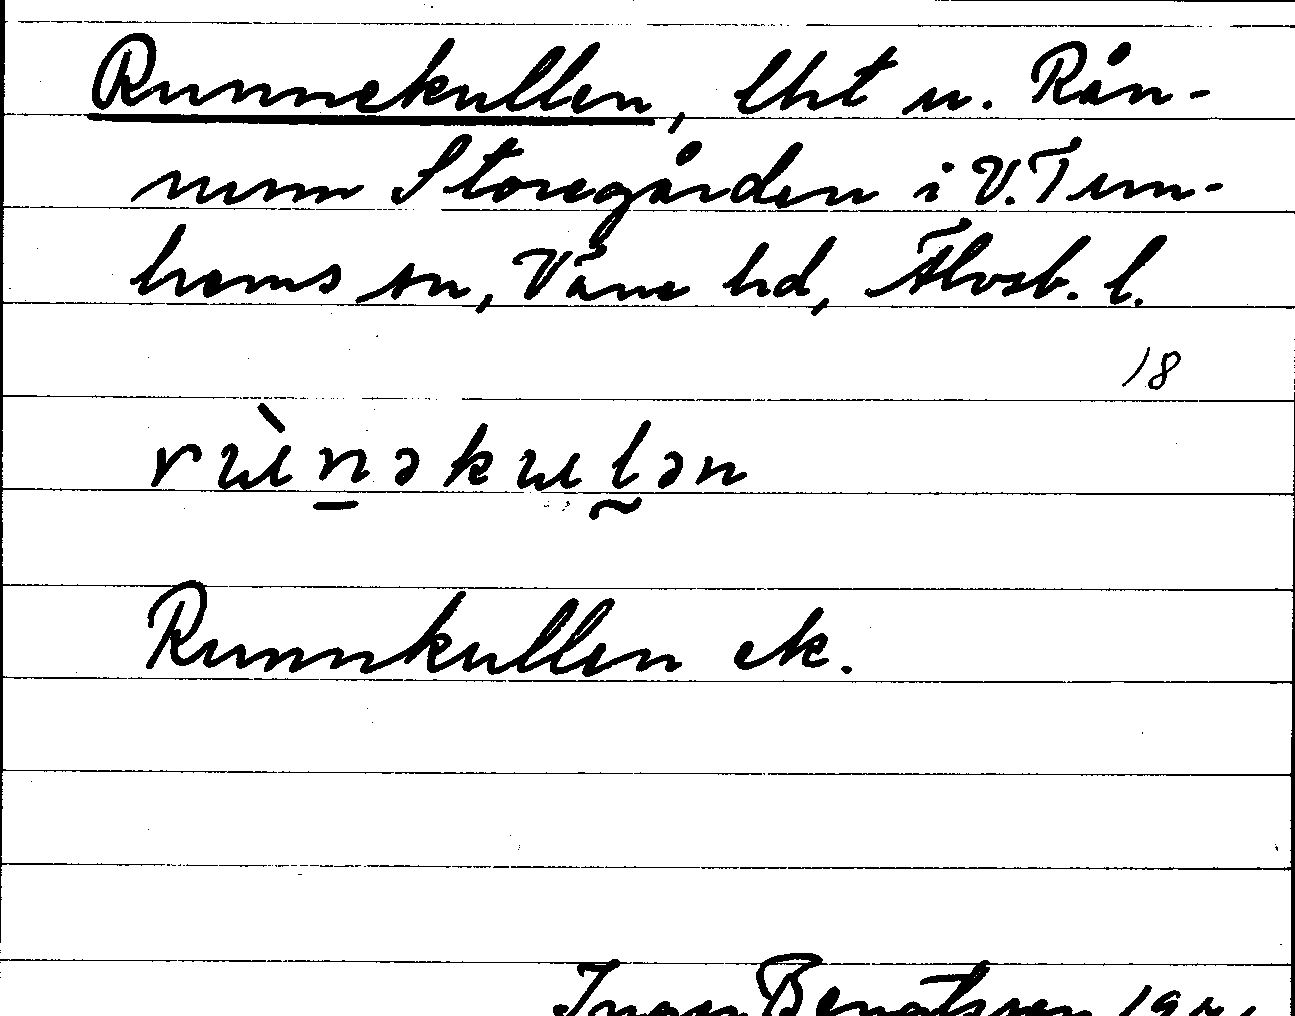 Runnekullen, lht u. Rån-
num Storegården i V. Tun-
hems sn, Väne hd, Älvsb. l.
18
rɯ̀nəkɯlən
Runnkullen ek.
Bengtsson